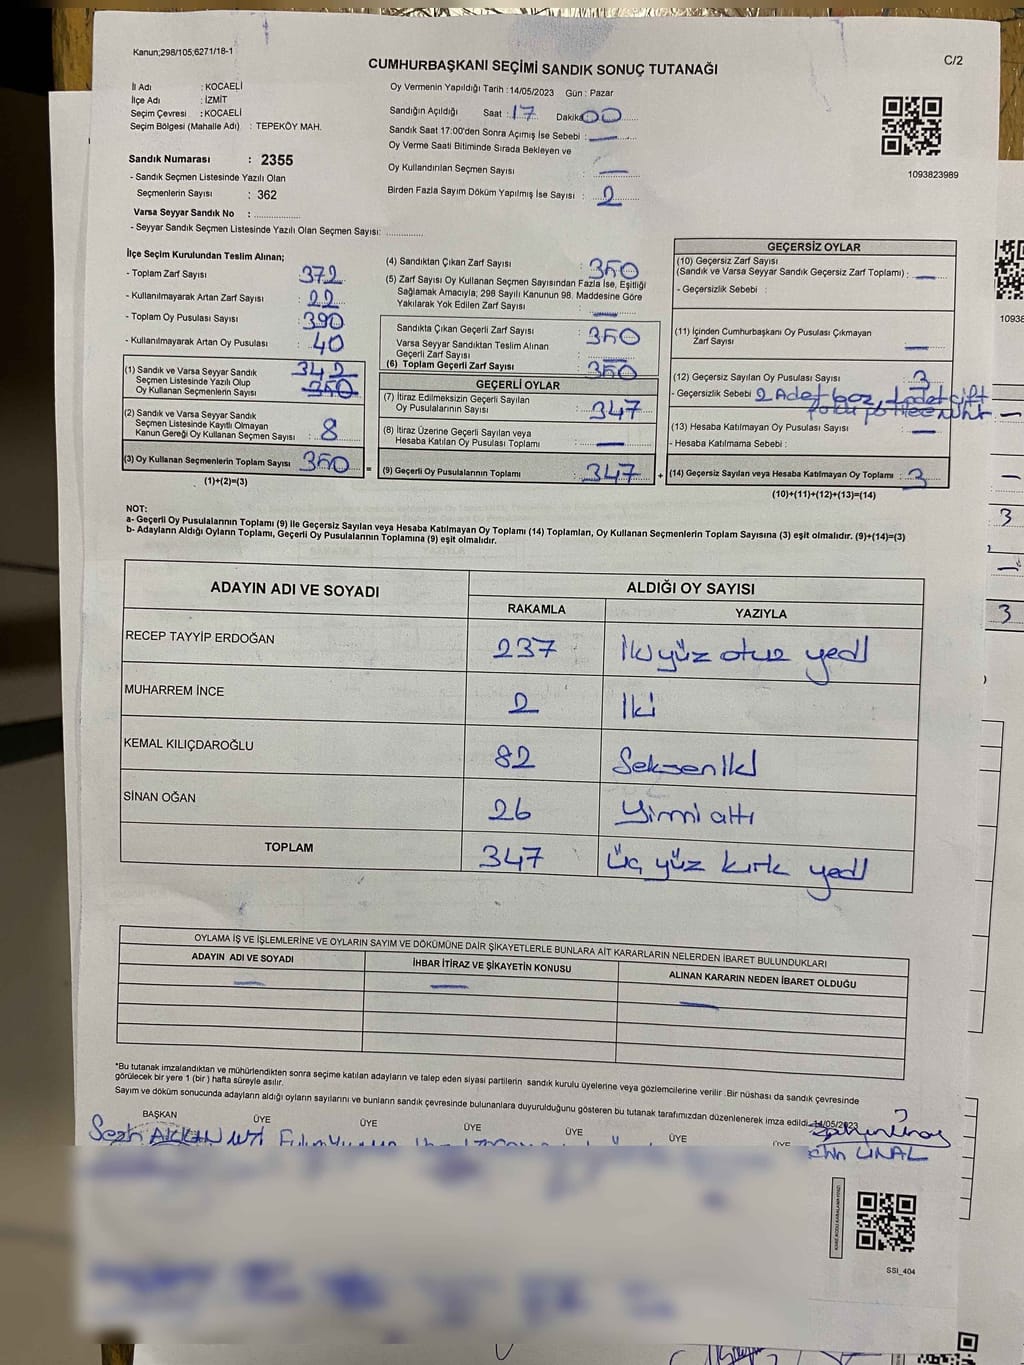 Kanun;298/105;6271/18-1
C/2
CUMHURBAŞKANI SEÇİMİ SANDIK SONUÇ TUTANAĞI
İl Adı : KOCAELİ
İlçe Adı : İZMİT
Seçim Çevresi : KOCAELİ
Seçim Bölgesi (Mahalle Adı) : TEPEKÖY MAH.
Sandık Numarası : 2355
- Sandık Seçmen Listesinde Yazılı Olan
Seçmenlerin Sayısı : 362
Varsa Seyyar Sandık No : ..................
- Seyyar Sandık Seçmen Listesinde Yazılı Olan Seçmen Sayısı: ..............
Oy Vermenin Yapıldığı Tarih : 14/05/2023 Gün : Pazar
Sandığın Açıldığı Saat : 17 Dakika 00
Sandık Saat 17:00'den Sonra Açımış İse Sebebi : —
Oy Verme Saati Bitiminde Sırada Bekleyen ve
Oy Kullandırılan Seçmen Sayısı —
Birden Fazla Sayım Döküm Yapılmış İse Sayısı : 2
1093823989
İlçe Seçim Kurulundan Teslim Alınan;
- Toplam Zarf Sayısı 372
- Kullanılmayarak Artan Zarf Sayısı : 22
- Toplam Oy Pusulası Sayısı : 390
- Kullanılmayarak Artan Oy Pusulası : 40
(1) Sandık ve Varsa Seyyar Sandık 342
Seçmen Listesinde Yazılı Olup
Oy Kullanan Seçmenlerin Sayısı : 350
(2) Sandık ve Varsa Seyyar Sandık
Seçmen Listesinde Kayıtlı Olmayan
Kanun Gereği Oy Kullanan Seçmen Sayısı : 8
(3) Oy Kullanan Seçmenlerin Toplam Sayısı 350
(1)+(2)=(3)
(4) Sandıktan Çıkan Zarf Sayısı : 350
(5) Zarf Sayısı Oy Kullanan Seçmen Sayısından Fazla İse, Eşitliği
Sağlamak Amacıyla; 298 Sayılı Kanunun 98. Maddesine Göre
Yakılarak Yok Edilen Zarf Sayısı : —
Sandıkta Çıkan Geçerli Zarf Sayısı : 350
Varsa Seyyar Sandıktan Teslim Alınan
Geçerli Zarf Sayısı
(6) Toplam Geçerli Zarf Sayısı : 350
GEÇERLİ OYLAR
(7) İtiraz Edilmeksizin Geçerli Sayılan
Oy Pusulalarının Sayısı : 347
(8) İtiraz Üzerine Geçerli Sayılan veya
Hesaba Katılan Oy Pusulası Toplamı : —
= (9) Geçerli Oy Pusulalarının Toplamı : 347 +
GEÇERSİZ OYLAR
(10) Geçersiz Zarf Sayısı
(Sandık ve Varsa Seyyar Sandık Geçersiz Zarf Toplamı) : —
- Geçersizlik Sebebi :
(11) İçinden Cumhurbaşkanı Oy Pusulası Çıkmayan
Zarf Sayısı —
(12) Geçersiz Sayılan Oy Pusulası Sayısı : 3
- Geçersizlik Sebebi 2 Adet boz, 1 adet çift
(13) Hesaba Katılmayan Oy Pusulası Sayısı : —
- Hesaba Katılmama Sebebi :
(14) Geçersiz Sayılan veya Hesaba Katılmayan Oy Toplamı : 3
(10)+(11)+(12)+(13)=(14)
NOT:
a- Geçerli Oy Pusulalarının Toplamı (9) ile Geçersiz Sayılan veya Hesaba Katılmayan Oy Toplamı (14) Toplamları, Oy Kullanan Seçmenlerin Toplam Sayısına (3) eşit olmalıdır. (9)+(14)=(3)
b- Adayların Aldığı Oyların Toplamı, Geçerli Oy Pusulalarının Toplamına (9) eşit olmalıdır.
ADAYIN ADI VE SOYADI ALDIĞI OY SAYISI
RAKAMLA YAZIYLA
RECEP TAYYİP ERDOĞAN 237 İki yüz otuz yedi
MUHARREM İNCE 2 İki
KEMAL KILIÇDAROĞLU 82 Seksen iki
SİNAN OĞAN 26 Yirmi altı
TOPLAM 347 üç yüz kırk yedi
OYLAMA İŞ VE İŞLEMLERİNE VE OYLARIN SAYIM VE DÖKÜMÜNE DAİR ŞİKAYETLERLE BUNLARA AİT KARARLARIN NELERDEN İBARET BULUNDUKLARI
ADAYIN ADI VE SOYADI İHBAR İTİRAZ VE ŞİKAYETİN KONUSU ALINAN KARARIN NEDEN İBARET OLDUĞU
— — —
*Bu tutanak imzalandıktan ve mühürlendikten sonra seçime katılan adayların ve talep eden siyasi partilerin sandık kurulu üyelerine veya gözlemcilerine verilir .Bir nüshası da sandık çevresinde
görülecek bir yere 1 (bir ) hafta süreyle asılır.
Sayım ve döküm sonucunda adayların aldığı oyların sayılarını ve bunların sandık çevresinde bulunanlara duyurulduğunu gösteren bu tutanak tarafımızdan düzenlenerek imza edildi. 14/05/2023
BAŞKAN ÜYE ÜYE ÜYE ÜYE ÜYE ÜYE
ÜNAL
SSI_404
1093
3
3